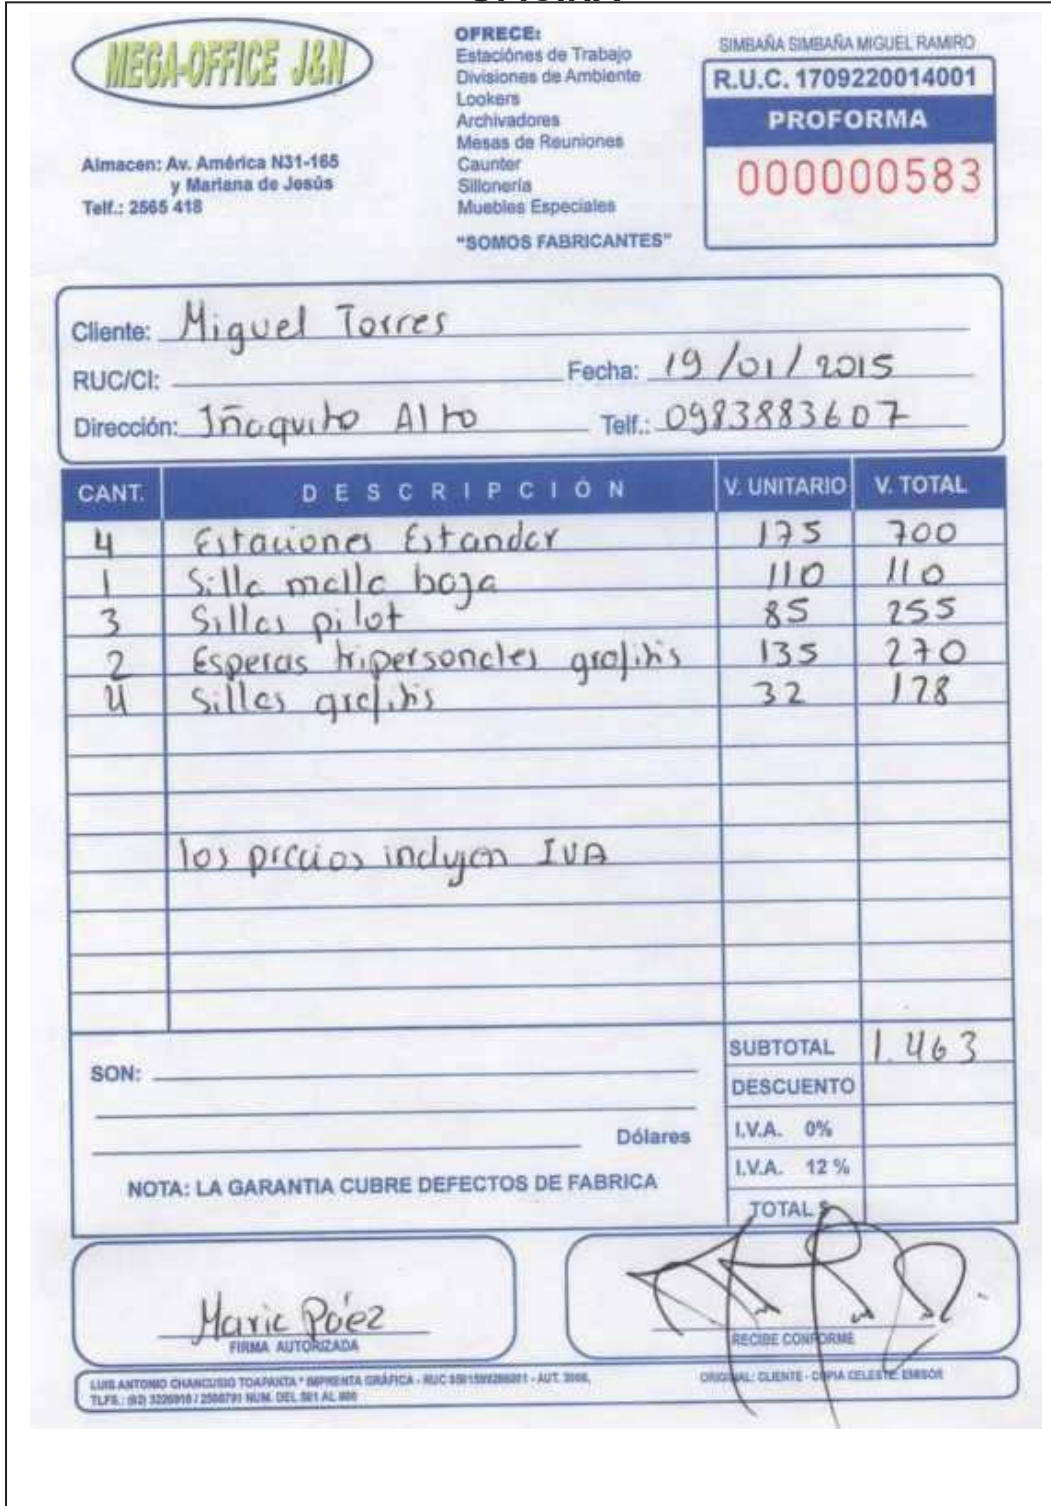 MEGA-OFFICE J&N
Almacen: Av. América N31-165
y Mariana de Jesús
Telf.: 2565 418
OFRECE:
Estaciónes de Trabajo
Divisiones de Ambiente
Lookers
Archivadores
Mesas de Reuniones
Caunter
Sillonería
Muebles Especiales
"SOMOS FABRICANTES"
SIMBAÑA SIMBAÑA MIGUEL RAMIRO
R.U.C. 1709220014001
PROFORMA
000000583
Cliente: Miguel Torres
RUC/CI: Fecha: 19/01/2015
Dirección: Iñaquito Alto Telf.: 0983883607
CANT. DESCRIPCIÓN V. UNITARIO V. TOTAL
4 Estaciones Estandar 175 700
1 Silla malla baja 110 110
3 Sillas pilot 85 255
2 Esperas tripersonales grafitis 135 270
4 Sillas grafitis 32 128
los precios incluyen IVA
SUBTOTAL 1.463
SON:
DESCUENTO
Dólares I.V.A. 0%
I.V.A. 12 %
NOTA: LA GARANTIA CUBRE DEFECTOS DE FABRICA
TOTAL $
Maria Páez
FIRMA AUTORIZADA
RECIBE CONFORME
LUIS ANTONIO CHANCUSIG TOAPANTA * IMPRENTA GRÁFICA - RUC - AUT.
TLFS.: (02) NUM. DEL 501 AL 600
ORIGINAL: CLIENTE - COPIA CELESTE: EMISOR